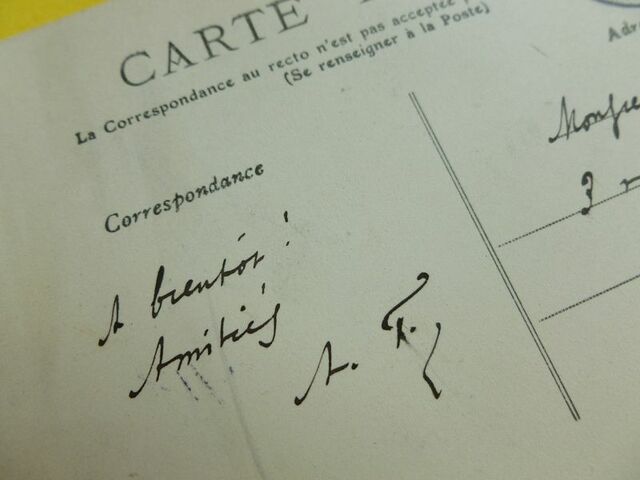 CARTE
La Correspondance au recto n'est pas acceptée
(Se renseigner à la Poste)
Correspondance
A bientôt !
Amitiés
A. F.
3